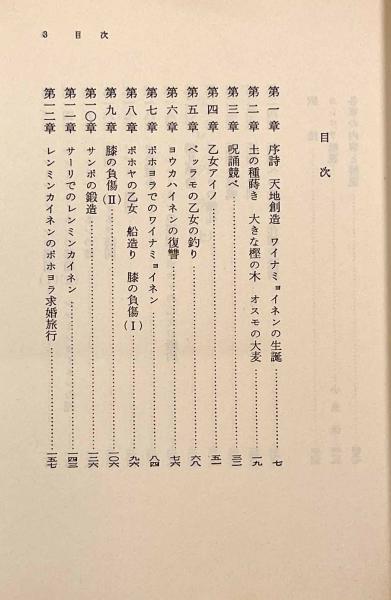 3 目次
目次
第一章 序詩 天地創造 ワイナミョイネンの生誕……七
第二章 土の種蒔き 大きな樫の木 オスモの大麦……一九
第三章 呪誦競べ……三二
第四章 乙女アイノ……五一
第五章 ベッラモの乙女の釣り……六八
第六章 ヨウカハイネンの復讐……七六
第七章 ポホヨラでのワイナミョイネン……八四
第八章 ポホヤの乙女 船造り 膝の負傷(I)……九六
第九章 膝の負傷(II)……一〇六
第一〇章 サンポの鍛造……一二六
第一一章 サーリでのレンミンカイネン……一四三
第一二章 レンミンカイネンのポホヨラ求婚旅行……一五七